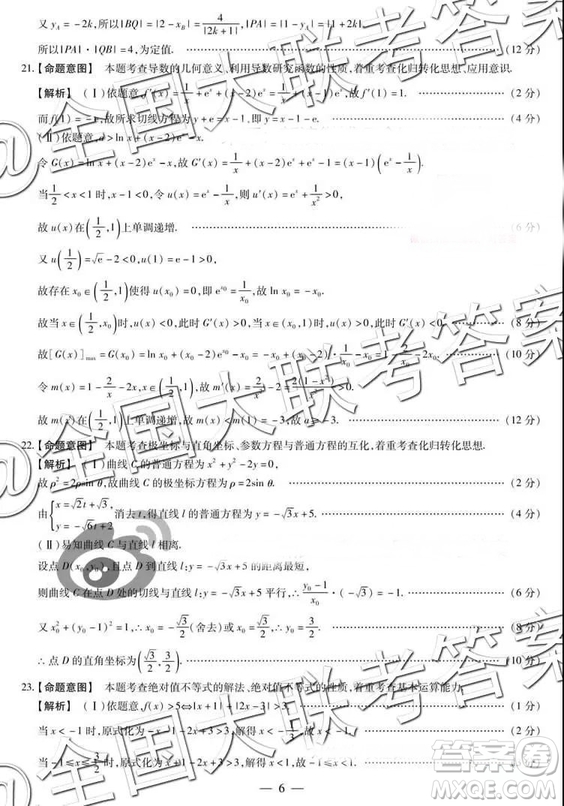 又 y_A = -2k,所以|BQ| = |2 - x_B| = 4/|2k+1|,|PA| = |1 - y_A| = |1 + 2k|,
所以|PA|·|QB| = 4,为定值. (12 分)
21.【命题意图】 本题考查导数的几何意义、利用导数研究函数的性质,着重考查化归转化思想、应用意识.
【解析】 (Ⅰ)依题意,f′(x) = 1/x + e^x + (x-2)e^x - 故 f′(1) = 1. (2 分)
而 f(1) = -e,故所求切线方程为 y + e = x - 1,即 y = x - 1 - e. (4 分)
(Ⅱ)依题意, > ln x + (x-2)e^x - x.
令 G(x) = ln x + (x-2)e^x - x,故 G′(x) = 1/x + (x-2)e^x + e^x - 1 = (x-1)(e^x - 1/x).
当 1/2 < x < 1 时,x - 1 < 0,令 u(x) = e^x - 1/x,则 u′(x) = e^x + 1/x² > 0,
故 u(x) 在(1/2,1)上单调递增. (6 分)
又 u(1/2) = √e - 2 < 0,u(1) = e - 1 > 0,
故存在 x₀∈(1/2,1)使得 u(x₀) = 0,即 e^{x₀} = 1/x₀.
故当 x∈(1/2,x₀)时,u(x) < 0,此时 G′(x) > 0,当 x∈(x₀,1)时,u(x) > 0,此时 G′(x) < 0, (8 分)
故[G(x)]_max = G(x₀) = ln x₀ + (x₀-2)e^{x₀} - x₀ = (x₀-2)·1/x₀ - 2x₀ = 1 - 2/x₀ - 2x₀. (10 分)
令 m(x) = 1 - 2/x - 2x,x∈(1/2,1),故 m′(x) = 2/x² - 2 = 2(1-x²)/x² > 0,
故 m(x)在(1/2,1)上单调递增,故 m(x) < m(1) = -3,故 -3. (12 分)
22.【命题意图】 本题考查极坐标与直角坐标、参数方程与普通方程的互化,着重考查化归转化思想.
【解析】 (Ⅰ)曲线 C 的普通方程为 x² + y² - 2y = 0, (2 分)
故 ρ² = 2ρsin θ,故曲线 C 的极坐标方程为 ρ = 2sin θ. (4 分)
由{x = √2t + √3, y = -√6t + 2 消去 t,得直线 l 的普通方程为 y = -√3x + 5. (5 分)
(Ⅱ)易知曲线 C 与直线 l 相离.
设点 D(x₀,y₀),且点 D 到直线 l:y = -√3x + 5 的距离最短,
则曲线 C 在点 D 处的切线与直线 l:y = -√3x + 5 平行,∴ (y₀-1)/x₀·(-√3) = -1. (8 分)
又 x₀² + (y₀-1)² = 1,∴ x₀ = -√3/2(舍去)或 x₀ = √3/2,
∴ 点 D 的直角坐标为(√3/2,3/2). (10 分)
23.【命题意图】 本题考查绝对值不等式的解法、绝对值不等式的性质,着重考查基本运算能力.
【解析】 (Ⅰ)依题意,f(x) > 5⇔|x+1| + |2x-3| > 3. (2 分)
当 x < -1 时,原式化为 -x-1-2x+3 > 3,解得 x < - 故 x < -1.
当 -1 ≤ x ≤ 3/2 时,原式化为 x+1-2x+3 > 3,解得 x < 1,
— 6 —
@全国大联考答案
答案圈